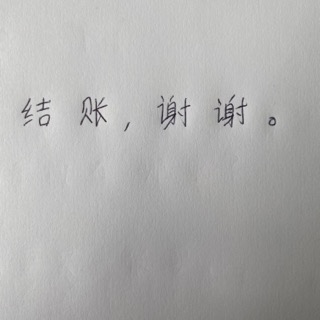 结账，谢谢。